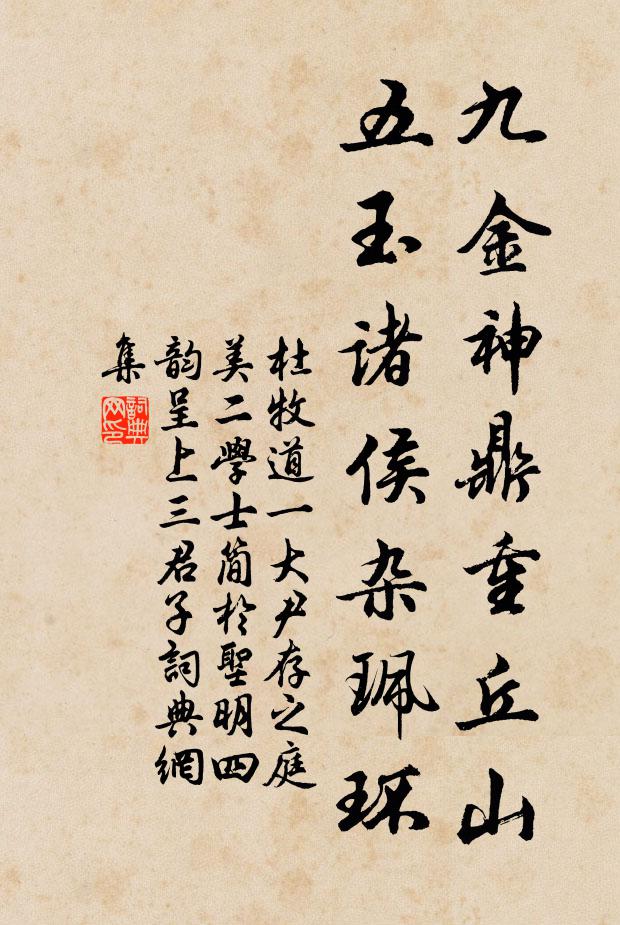 九金神鼎重丘山
五玉诸侯杂珮环
杜牧道一大尹存之庭
美二學士简於聖明四
韵呈上三君子詞典網
集
詞典網印